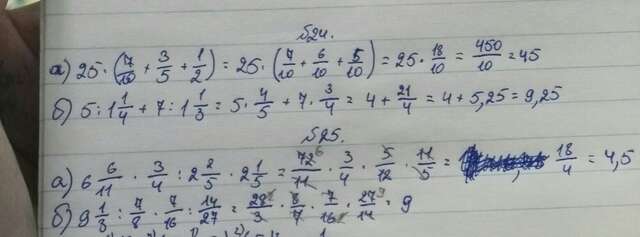 §24.
а) 25 · (7/10 + 3/5 + 1/2) = 25 · (7/10 + 6/10 + 5/10) = 25 · 18/10 = 450/10 = 45
б) 5 : 1 1/4 + 7 : 1 1/3 = 5 · 4/5 + 7 · 3/4 = 4 + 21/4 = 4 + 5,25 = 9,25
§25.
а) 6 6/11 · 3/4 : 2 2/5 · 2 1/5 = 72⁶/11 · 3/4 · 5/12 · 11/5 = 18/4 = 4,5
б) 9 1/3 : 7/8 · 7/16 : 14/27 = 28/3 · 8/7 · 7/16 · 27/14 = 9